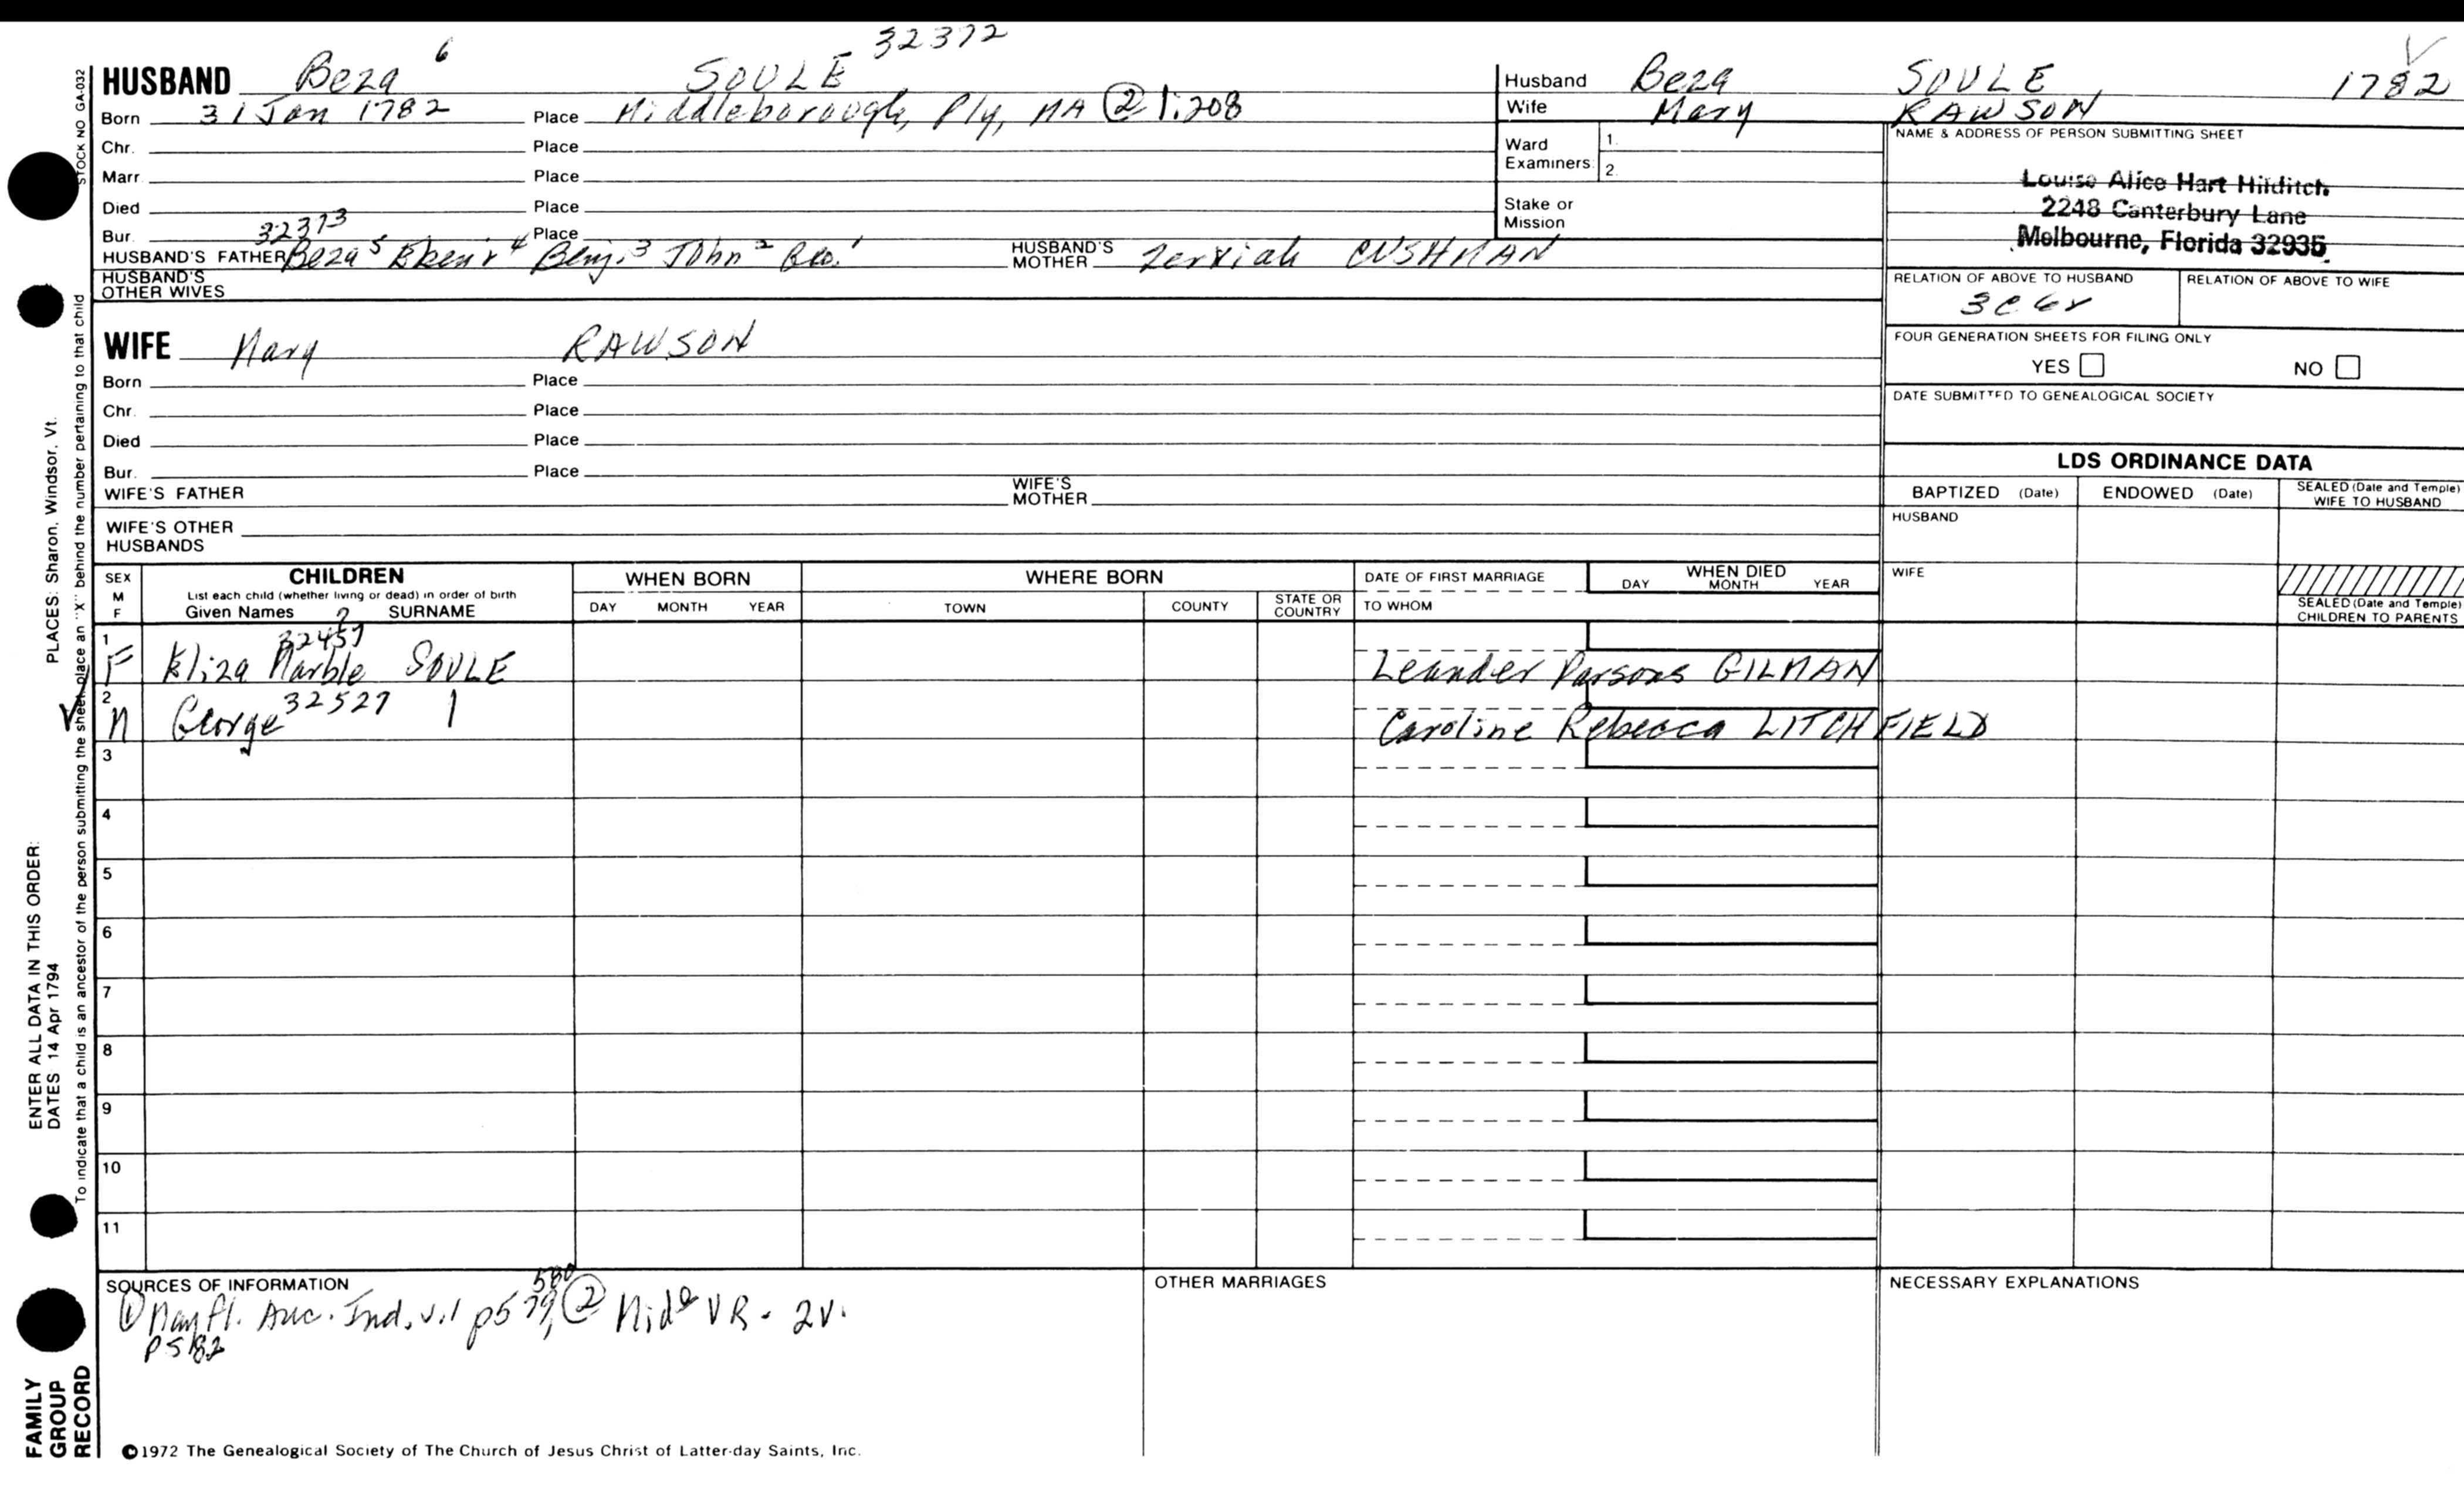 32372
HUSBAND Beza 6 SOULE
Born 31 Jan 1782 Place Middleborough, Ply, MA ② 1:208
Chr. Place
Marr Place
Died Place
32373
Bur. Place
HUSBAND'S FATHER Beza 5 Eben'r 4 Benj. 3 John 2 Geo. 1 HUSBAND'S MOTHER Zerviah CUSHMAN
HUSBAND'S OTHER WIVES
Husband Beza SOULE 1782
Wife Mary RAWSON
Ward Examiners 1. 2.
Stake or Mission
NAME & ADDRESS OF PERSON SUBMITTING SHEET
Louise Alice Hart Hilditch
2248 Canterbury Lane
Melbourne, Florida 32935
RELATION OF ABOVE TO HUSBAND RELATION OF ABOVE TO WIFE
3C6r
FOUR GENERATION SHEETS FOR FILING ONLY
YES NO
DATE SUBMITTED TO GENEALOGICAL SOCIETY
WIFE Mary RAWSON
Born Place
Chr. Place
Died Place
Bur. Place
WIFE'S FATHER WIFE'S MOTHER
WIFE'S OTHER HUSBANDS
LDS ORDINANCE DATA
BAPTIZED (Date) ENDOWED (Date) SEALED (Date and Temple) WIFE TO HUSBAND
HUSBAND
WIFE
SEALED (Date and Temple) CHILDREN TO PARENTS
SEX M F
CHILDREN
List each child (whether living or dead) in order of birth
Given Names SURNAME
WHEN BORN
DAY MONTH YEAR
WHERE BORN
TOWN COUNTY STATE OR COUNTRY
DATE OF FIRST MARRIAGE
TO WHOM
WHEN DIED
DAY MONTH YEAR
?
32457
1 F Eliza Marble SOULE Leander Parsons GILMAN
2 M George 32527 | Caroline Rebecca LITCHFIELD
3
4
5
6
7
8
9
10
11
SOURCES OF INFORMATION
① Mayfl. Anc. Ind. v.1 p579, 580 ② Mid° VR - 2v.
p582
OTHER MARRIAGES
NECESSARY EXPLANATIONS
©1972 The Genealogical Society of The Church of Jesus Christ of Latter-day Saints, Inc.
STOCK NO GA-032
To indicate that a child is an ancestor of the person submitting the sheet, place an "X" behind the number pertaining to that child
PLACES: Sharon, Windsor, Vt.
ENTER ALL DATA IN THIS ORDER:
DATES 14 Apr 1794
FAMILY
GROUP
RECORD